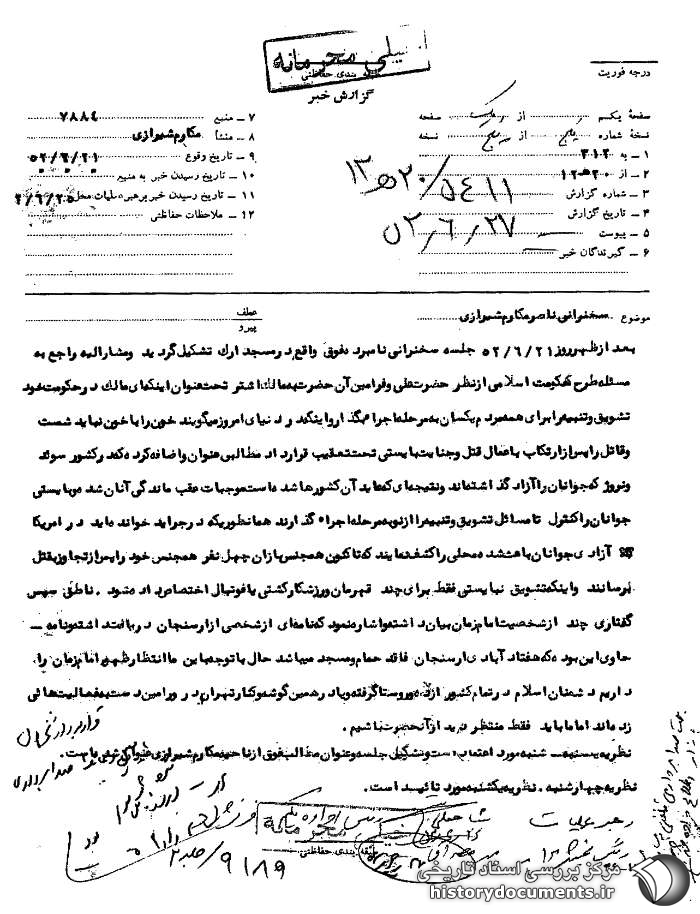 خیلی محرمانه
طبقه بندی حفاظتی
گزارش خبر
درجه فوریت
صفحهٔ یکم از یک صفحه
نسخهٔ شماره پنج از پنج نسخه
۱ ــ به ۳۱۲
۲ ــ از ۲۰ ه‍ ۱۲
۳ ــ شماره گزارش
۴ ــ تاریخ گزارش ۵۲/۶/۲۷
۵ ــ پیوست
۶ ــ گیرندگان خبر
۷ ــ منبع ۷۸۸۴
۸ ــ منشأ مکارم شیرازی
۹ ــ تاریخ وقوع ۵۲/۶/۲۱
۱۰ ــ تاریخ رسیدن خبر به منبع
۱۱ ــ تاریخ رسیدن خبر برهبر عملیات محل
۱۲ ــ ملاحظات حفاظتی
موضوع سخنرانی ناصر مکارم شیرازی
عطف
پیرو
بعد از ظهر روز ۵۲/۶/۲۱ جلسه سخنرانی نامبرده فوق واقع در مسجد ارک تشکیل گردید ومشارالیه راجع به
مسئله طرح حکومت اسلامی از نظر حضرت علی و فرامین آن حضرت به مالک اشتر تحت عنوان اینکه ای مالک در حکومت خود
تشویق و تنبیه را برای همه مردم یکسان به مرحله اجرا بگذار واینکه در دنیای امروز میگویند خون را با خون نباید شست
وقاتل را پس از ارتکاب باعمال قتل وجنایت بایستی تحت تعقیب قرار داد مطالبی عنوان واضافه کرد که در کشور سوئد
ونروژ که جوانان را آزاد گذاشته اند ونتیجه ای که عاید آن کشورها شده است موجبات عقب ماندگی آنان شده وبایستی
جوانان را کنترل تا مسائل تشویق وتنبیه را از نو به مرحله اجراء گذارند همانطوریکه در جراید خوانده اید در امریکا
آزادی جوانان باعث شده محلی را کشف نمایند که تاکنون همجنس بازان چهل نفر همجنس خود را پس از تجاوز بقتل
برسانند واینکه تشویق نبایستی فقط برای چند قهرمان ورزشکار کشتی یا فوتبال اختصاص داده شود . ناطق سپس
گفتاری چند از شخصیت امام زمان بیان داشته واشاره نمود که نامه ای از شخصی از ارسنجان دریافت داشته ونامه ــ
حاوی این بوده که هفتاد آبادی ارسنجان فاقد حمام ومسجد میباشد حال با توجه باین ما انتظار ظهور امام زمان را
داریم دشمنان اسلام در تمام کشور از ده وروستا گرفته ویا در همین گوشه وکنار تهران در ورامین دست به فعالیت هائی
زده اند اما ما باید فقط منتظر فرید از آنحضرت باشیم .
نظریه یسشنبه ــ شنبه مورد اعتماد است وتشکیل جلسه وعنوان مطالب فوق از ناحیه مکارم شیرازی عنوان شده است .
نظریه چهارشنبه . نظریه یکشنبه مورد تائید است .
رهبر عملیات
خیلی محرمانه
طبقه بندی حفاظتی
مرکز بررسی اسناد تاریخی
historydocuments.ir